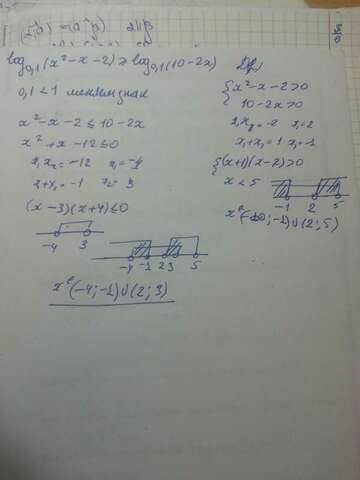 log₀,₁(x²-x-2) ≥ log₀,₁(10-2x)
0,1 < 1 меняем знак
x²-x-2 ≤ 10-2x
x²+x-12 ≤ 0
x₁x₂ = -12 x₁ = -4
x₁+x₂ = -1 x₂ = 3
(x-3)(x+4) ≤ 0
-4 3
-4 -1 2 3 5
x ∈ (-4; -1) ∪ (2; 3)
{x²-x-2>0
10-2x>0
x₁x₂ = -2 x₁ = 2
x₁+x₂ = 1 x₂ = -1
{(x+1)(x-2)>0
x < 5
-1 2 5
; -1) ∪ (2; 5)